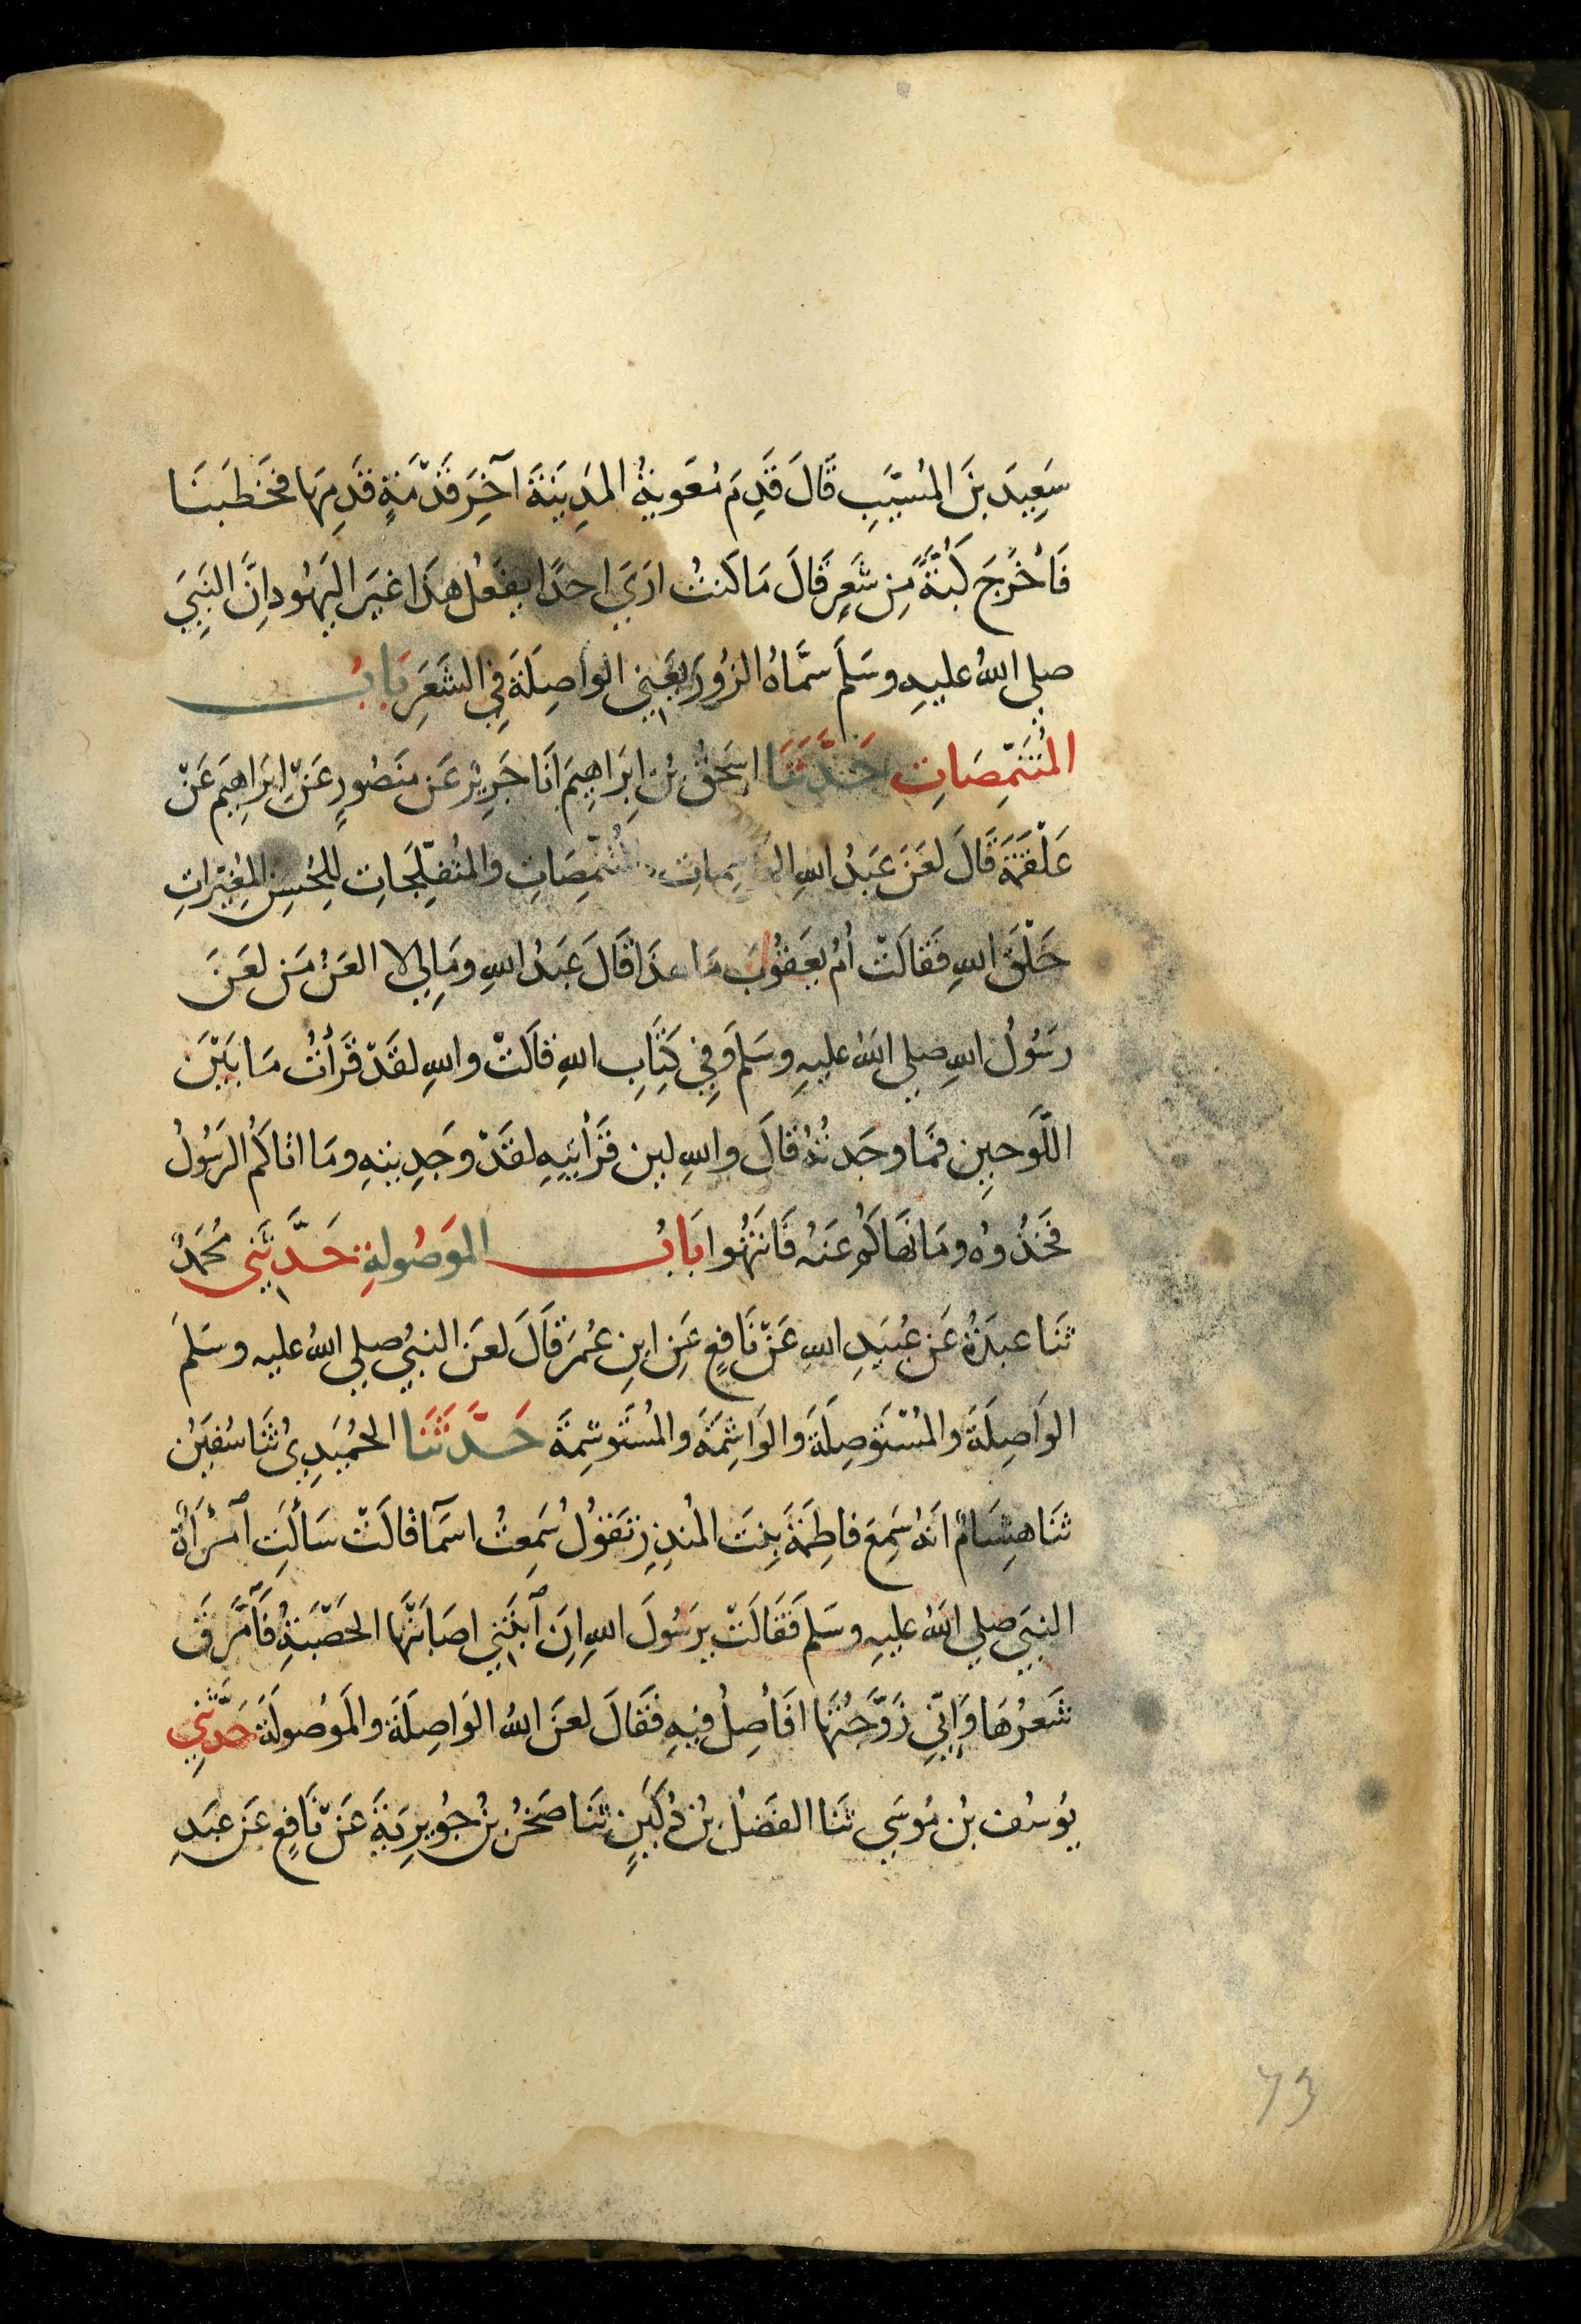 سَعِيدَ بنَ المُسَيَّبِ قَالَ قَدِمَ مُعَوِيةُ المَدِينَةَ آخِرَ قَدْمَةٍ قَدِمَهَا فَخَطَبَنَا
فَأَخْرَجَ كُبَّةً مِن شَعَرٍ قَالَ مَا كَنتُ ارَيَ احدًا يفعَلُ هذَا غيَر اليَهُود اِنَّ النَبِيَ
صلى اللهُ عليهِ وسَلَم سَمَّاهُ الزُورَ يَعني الواصِلَةَ في الشَعَرِ بَابُ
المُتَنَمِّصَاتِ حَدَّثَنَا اسحَقُ بنُ اِبرَاهِيمَ اَنَا جَرِيْر عَن منصُورٍ عَن اِبرَاهِيمَ عَنْ
عَلْقَمَةَ قَالَ لعَنَ عَبدُ اللهِ والمُتَفلِّجَاتِ لِلحُسنِ المُغِيّراتِ
خَلْقَ اللهِ فَقَالَتْ أمُ يعقُوبَ مَا هذَا قَالَ عَبدُ اللهِ ومَا لِي لا العَنُ مَن لعَنَ
رَسُولُ اللهِ صلي اللهُ عليهِ وسَلَم وَفِي كِتَابِ اللهِ قالَتْ واللهِ لقَدْ قَرَأتُ مَا بَيْنَ
اللَّوحَينِ فَمَا وجَدتُهُ قَالَ واللهِ لين قَرَأتيهِ لقَدْ وجَدِيتهِ ومَا اتاكُم الرَسُولُ
فَخُذُوه ومَا نَهَاكُم عَنهُ فَانتَهُوا بَابُ المَوصُولةِ حَدَّثَني مُحَمَدٌ
ثَنا عبدَةُ عَن عُبَيدِ اللهِ عَنْ نَافعٍ عَنِ ابنِ عُمَرَ قَالَ لعَنَ النبيُ صلي اللهُ عليه وسَلَم
الوَاصِلَةَ والمُسْتَوصِلَةَ والوَاشِمَةَ والمُستَوشِمَةَ حَدَّثَنَا الحُمَيدِيُ ثَنَا سُفيَنُ
ثَنَا هِشَامٌ انَهُ سَمِعَ فاطِمَةَ بِنتَ المُنذِرِ تَقُولُ سَمِعتُ اسمَآ قالَتْ سَألَتِ آمرَأةٌ
النبيَ صلي اللهُ عليهِ وسَلم فَقَالَتْ يرَسُولَ اللهِ اِنَ آبنَتي اصَابَتْها الحَصْبَةُ فَآمَّرَقَ
شَعرُهَا وَاِنّي زَوَّجتُهَا افَأصِلُ فيهِ فقَالَ لعَنَ اللهُ الوَاصِلَةَ والمَوصُولَةَ حَدَّثَنِي
يوسُف بن مُوسَي ثَنَا الفَضلُ بنُ دُكَينٍ ثَنَا صَخرُ بنُ جُويرِيَةَ عَنْ نَافعٍ عَن عبَدِ
73